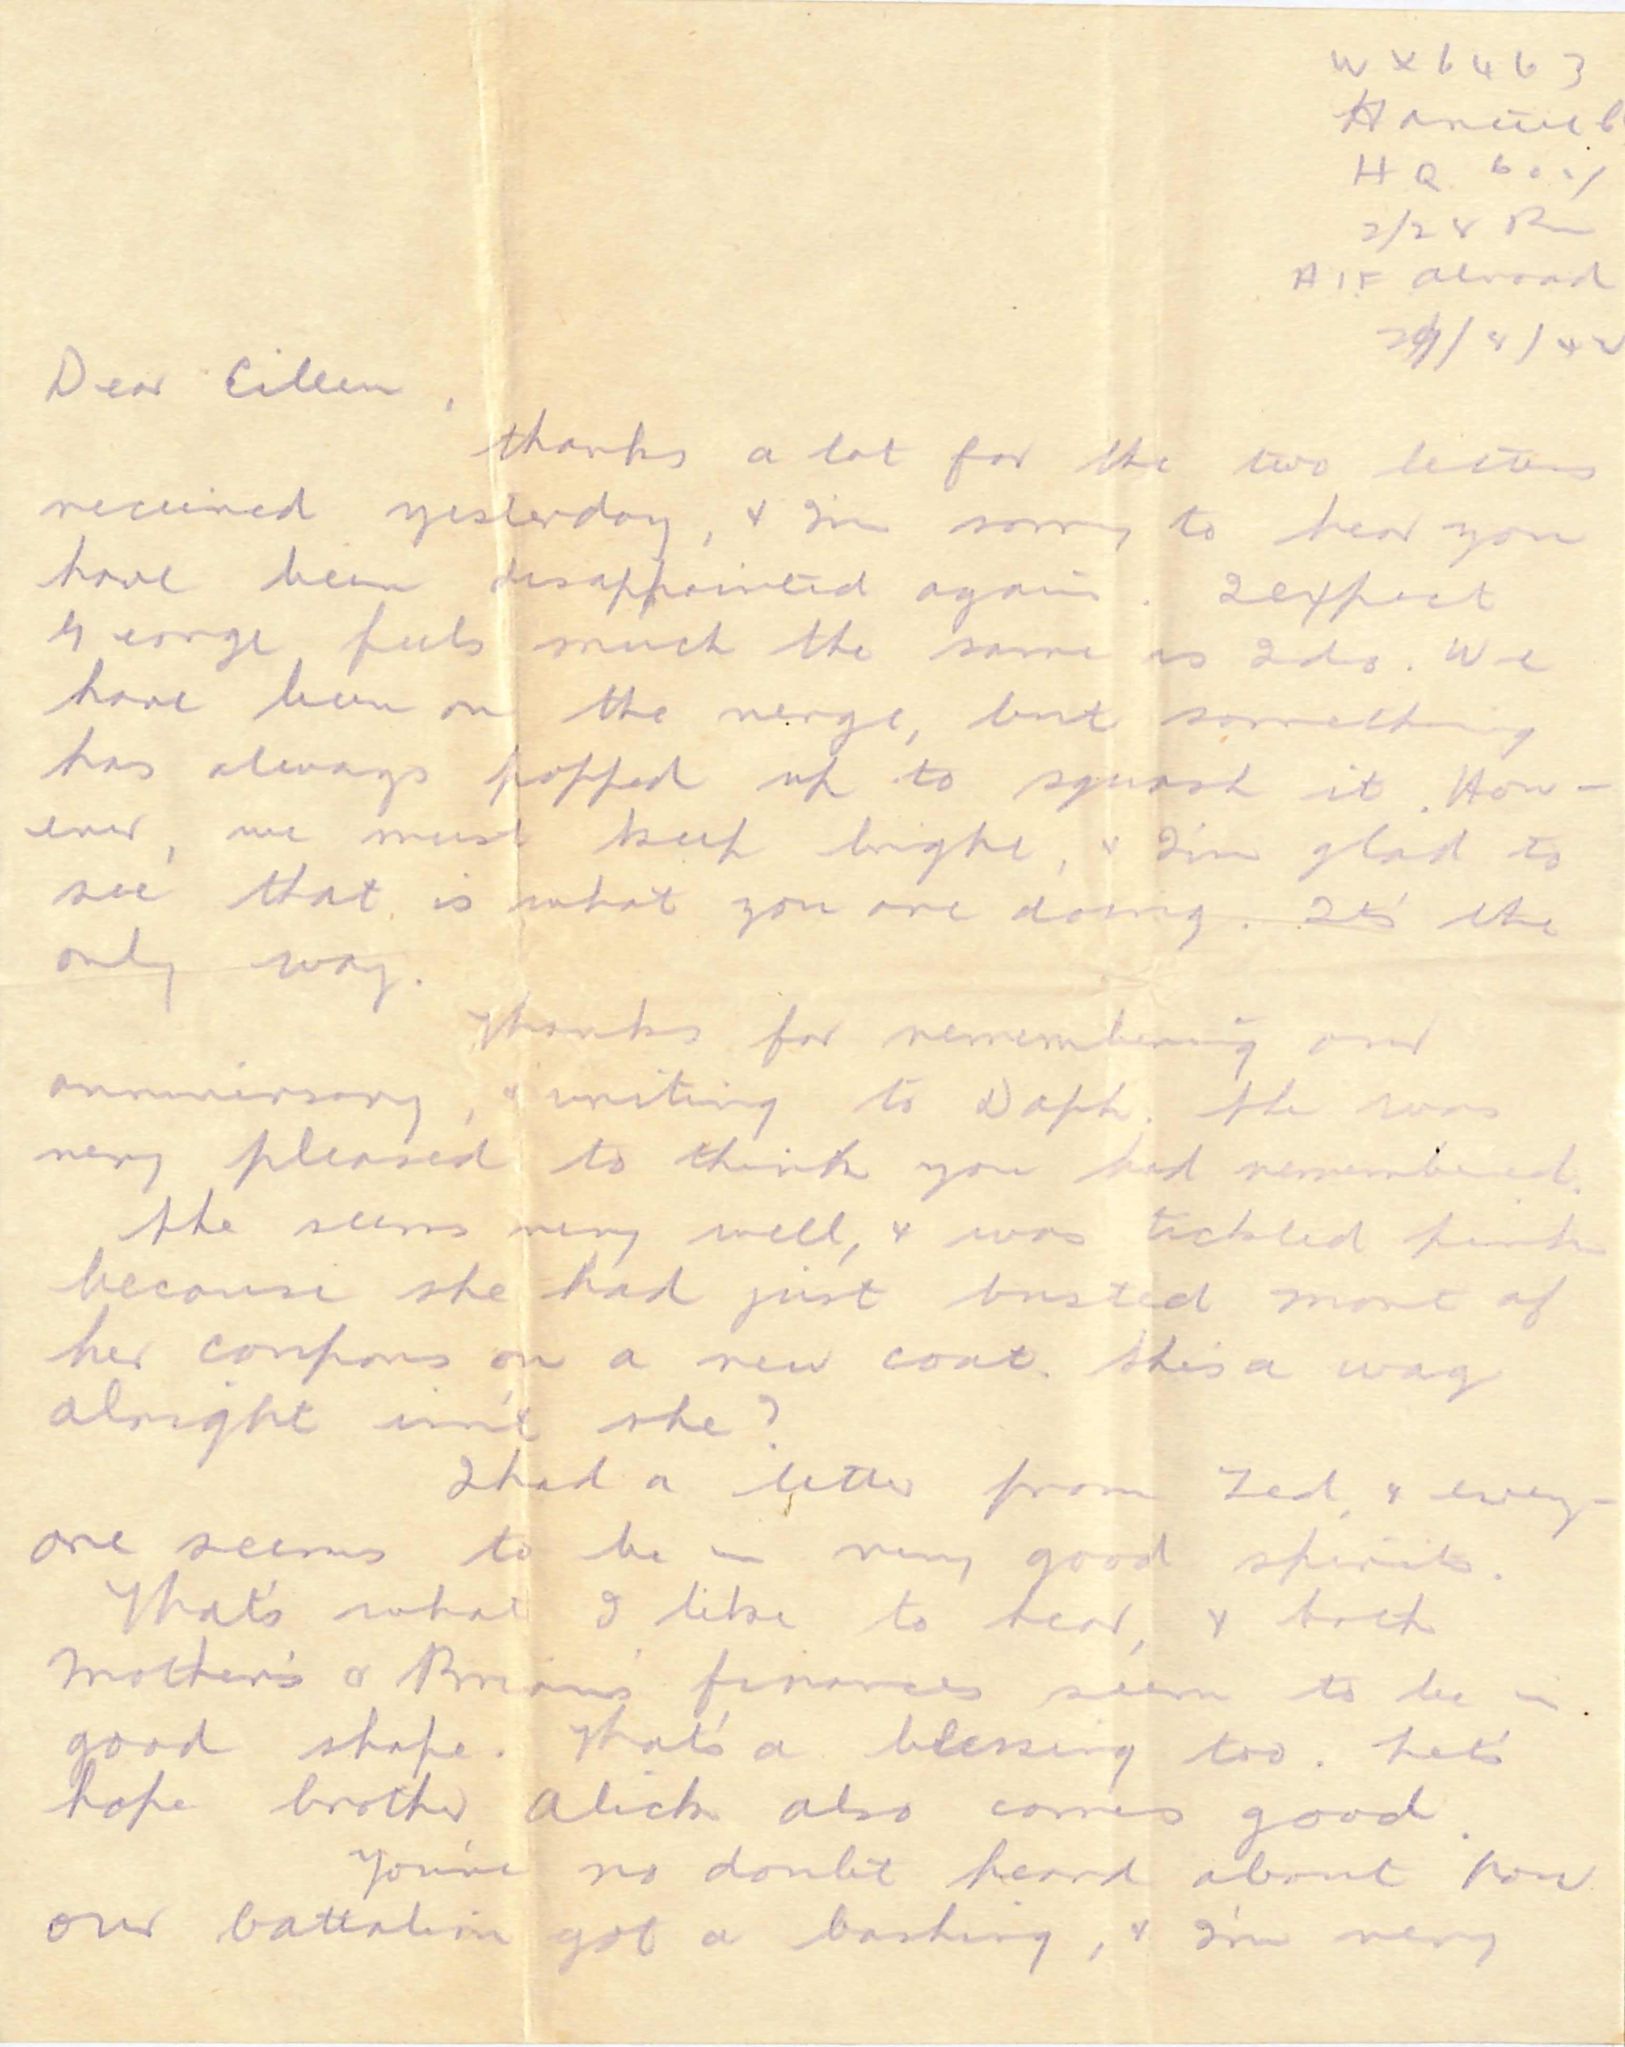 WX6463
HQ Coy
2/28 Bn
AIF abroad
Dear Eileen,
thanks a lot for the two letters
received yesterday, & I'm sorry to hear you
have been disappointed again. I expect
George feels much the same as I do. We
have been on the verge, but something
has always popped up to squash it. How-
ever, we must keep bright, & I'm glad to
see that is what you are doing. It's the
only way.
Thanks for remembering our
anniversary, & writing to Daph. She was
very pleased to think you had remembered.
She seems very well, & was tickled pink
because she had just busted most of
her coupons on a new coat. She's a wag
alright isn't she?
I had a letter from Ted, & every-
one seems to be in very good spirits.
That's what I like to hear, & both
Mother's & Brian's finances seem to be in
good shape. That's a blessing too. Let's
hope brother Alick also comes good.
You've no doubt heard about how
our battalion got a bashing, & I'm very